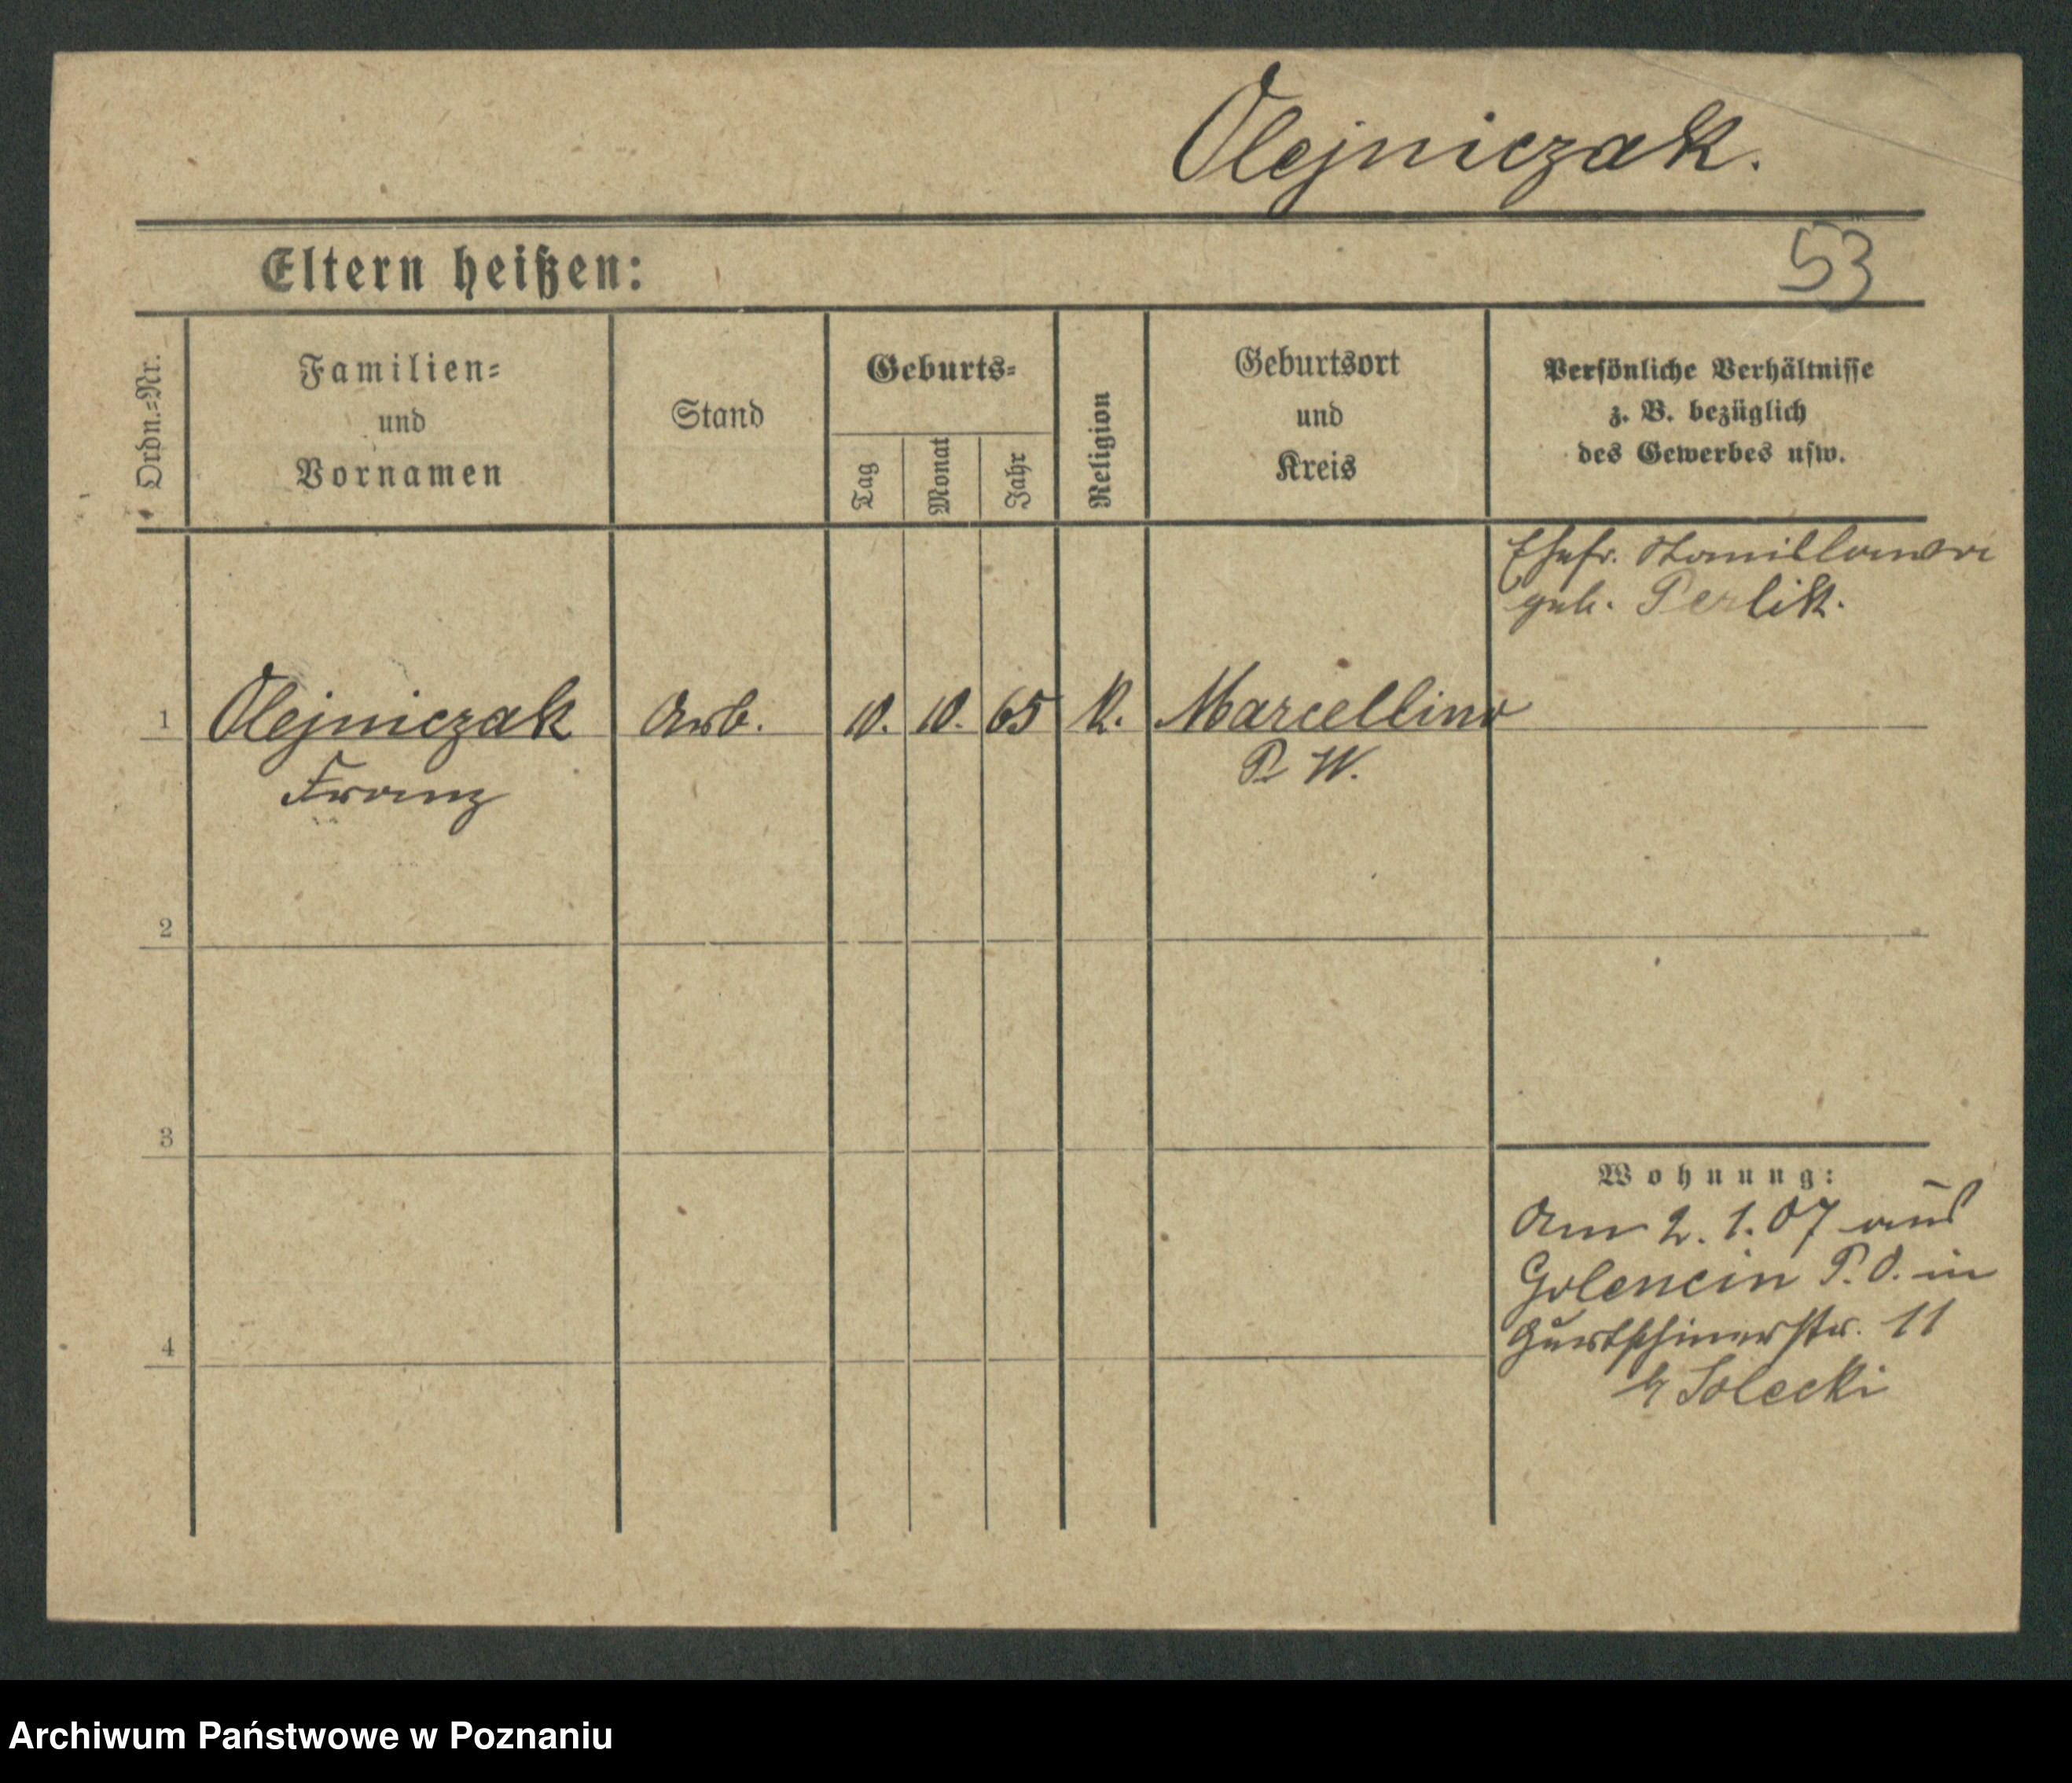 Olejniczak.
Eltern heißen:
53
Ordn.=Nr.
Familien=
und
Vornamen
Stand
Geburts=
Tag
Monat
Jahr
Religion
Geburtsort
und
Kreis
Persönliche Verhältnisse
z. B. bezüglich
des Gewerbes usw.
Ehefr.
geb. Perlik.
1
Olejniczak
Arb.
10. 10. 65
K.
Marcellino
Franz
P. W.
2
3
4
Wohnung:
Am 2. 1. 07 aus
Golencin P. O. in
Gurtschinerstr. 11
b Solecki
Archiwum Państwowe w Poznaniu